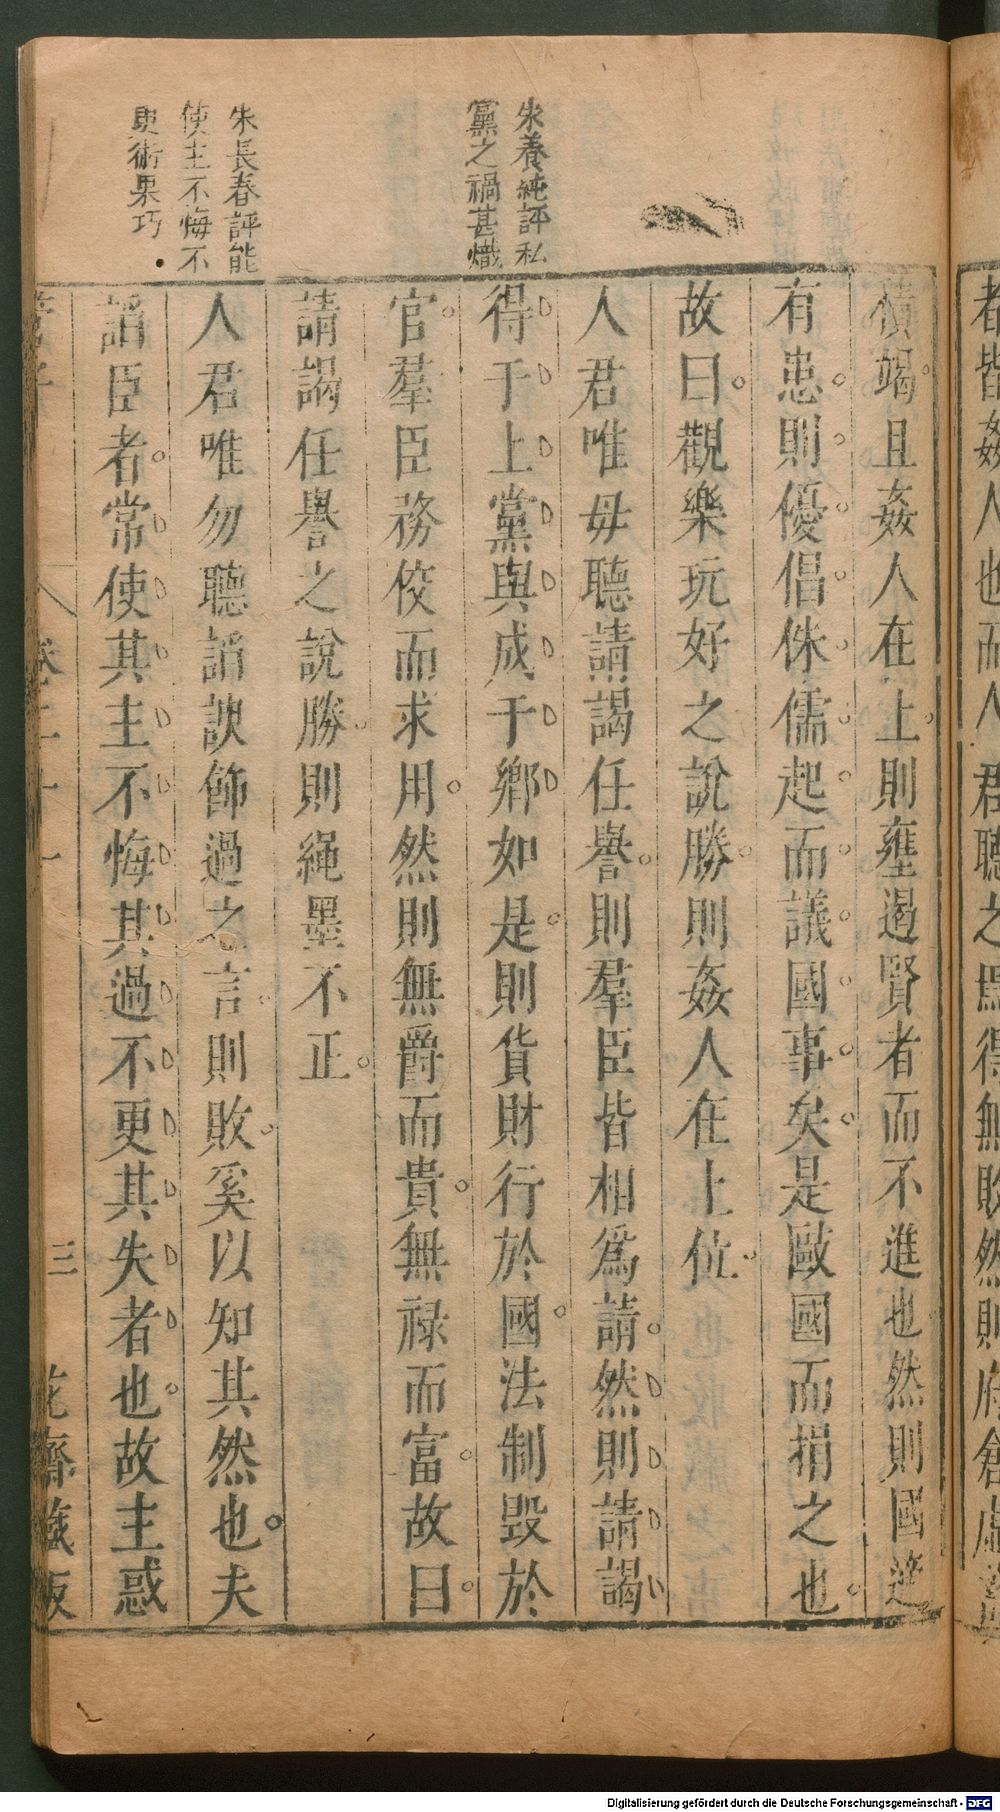 者皆姦人也而人君聽之焉得無敗然則府倉虛
積竭且姦人在上則壅遏賢者而不進也然則國適
有患則優倡侏儒起而議國事矣是敺國而捐之也
故曰觀樂玩好之說勝則姦人在上位
人君唯毋聽請謁任譽則羣臣皆相爲請然則請謁
得于上黨與成于鄉如是則貨財行於國法制毀於
官羣臣務佼而求用然則無爵而貴無祿而富故曰
請謁任譽之說勝則繩墨不正
人君唯勿聽諂諛飾過之言則敗奚以知其然也夫
諂臣者常使其主不悔其過不更其失者也故主惑
朱養純評私
黨之禍甚熾
朱長春評能
使主不悔不
更術果巧
管子
卷二十一
三
花齋藏板
Digitalisierung gefördert durch die Deutsche Forschungsgemeinschaft - DFG